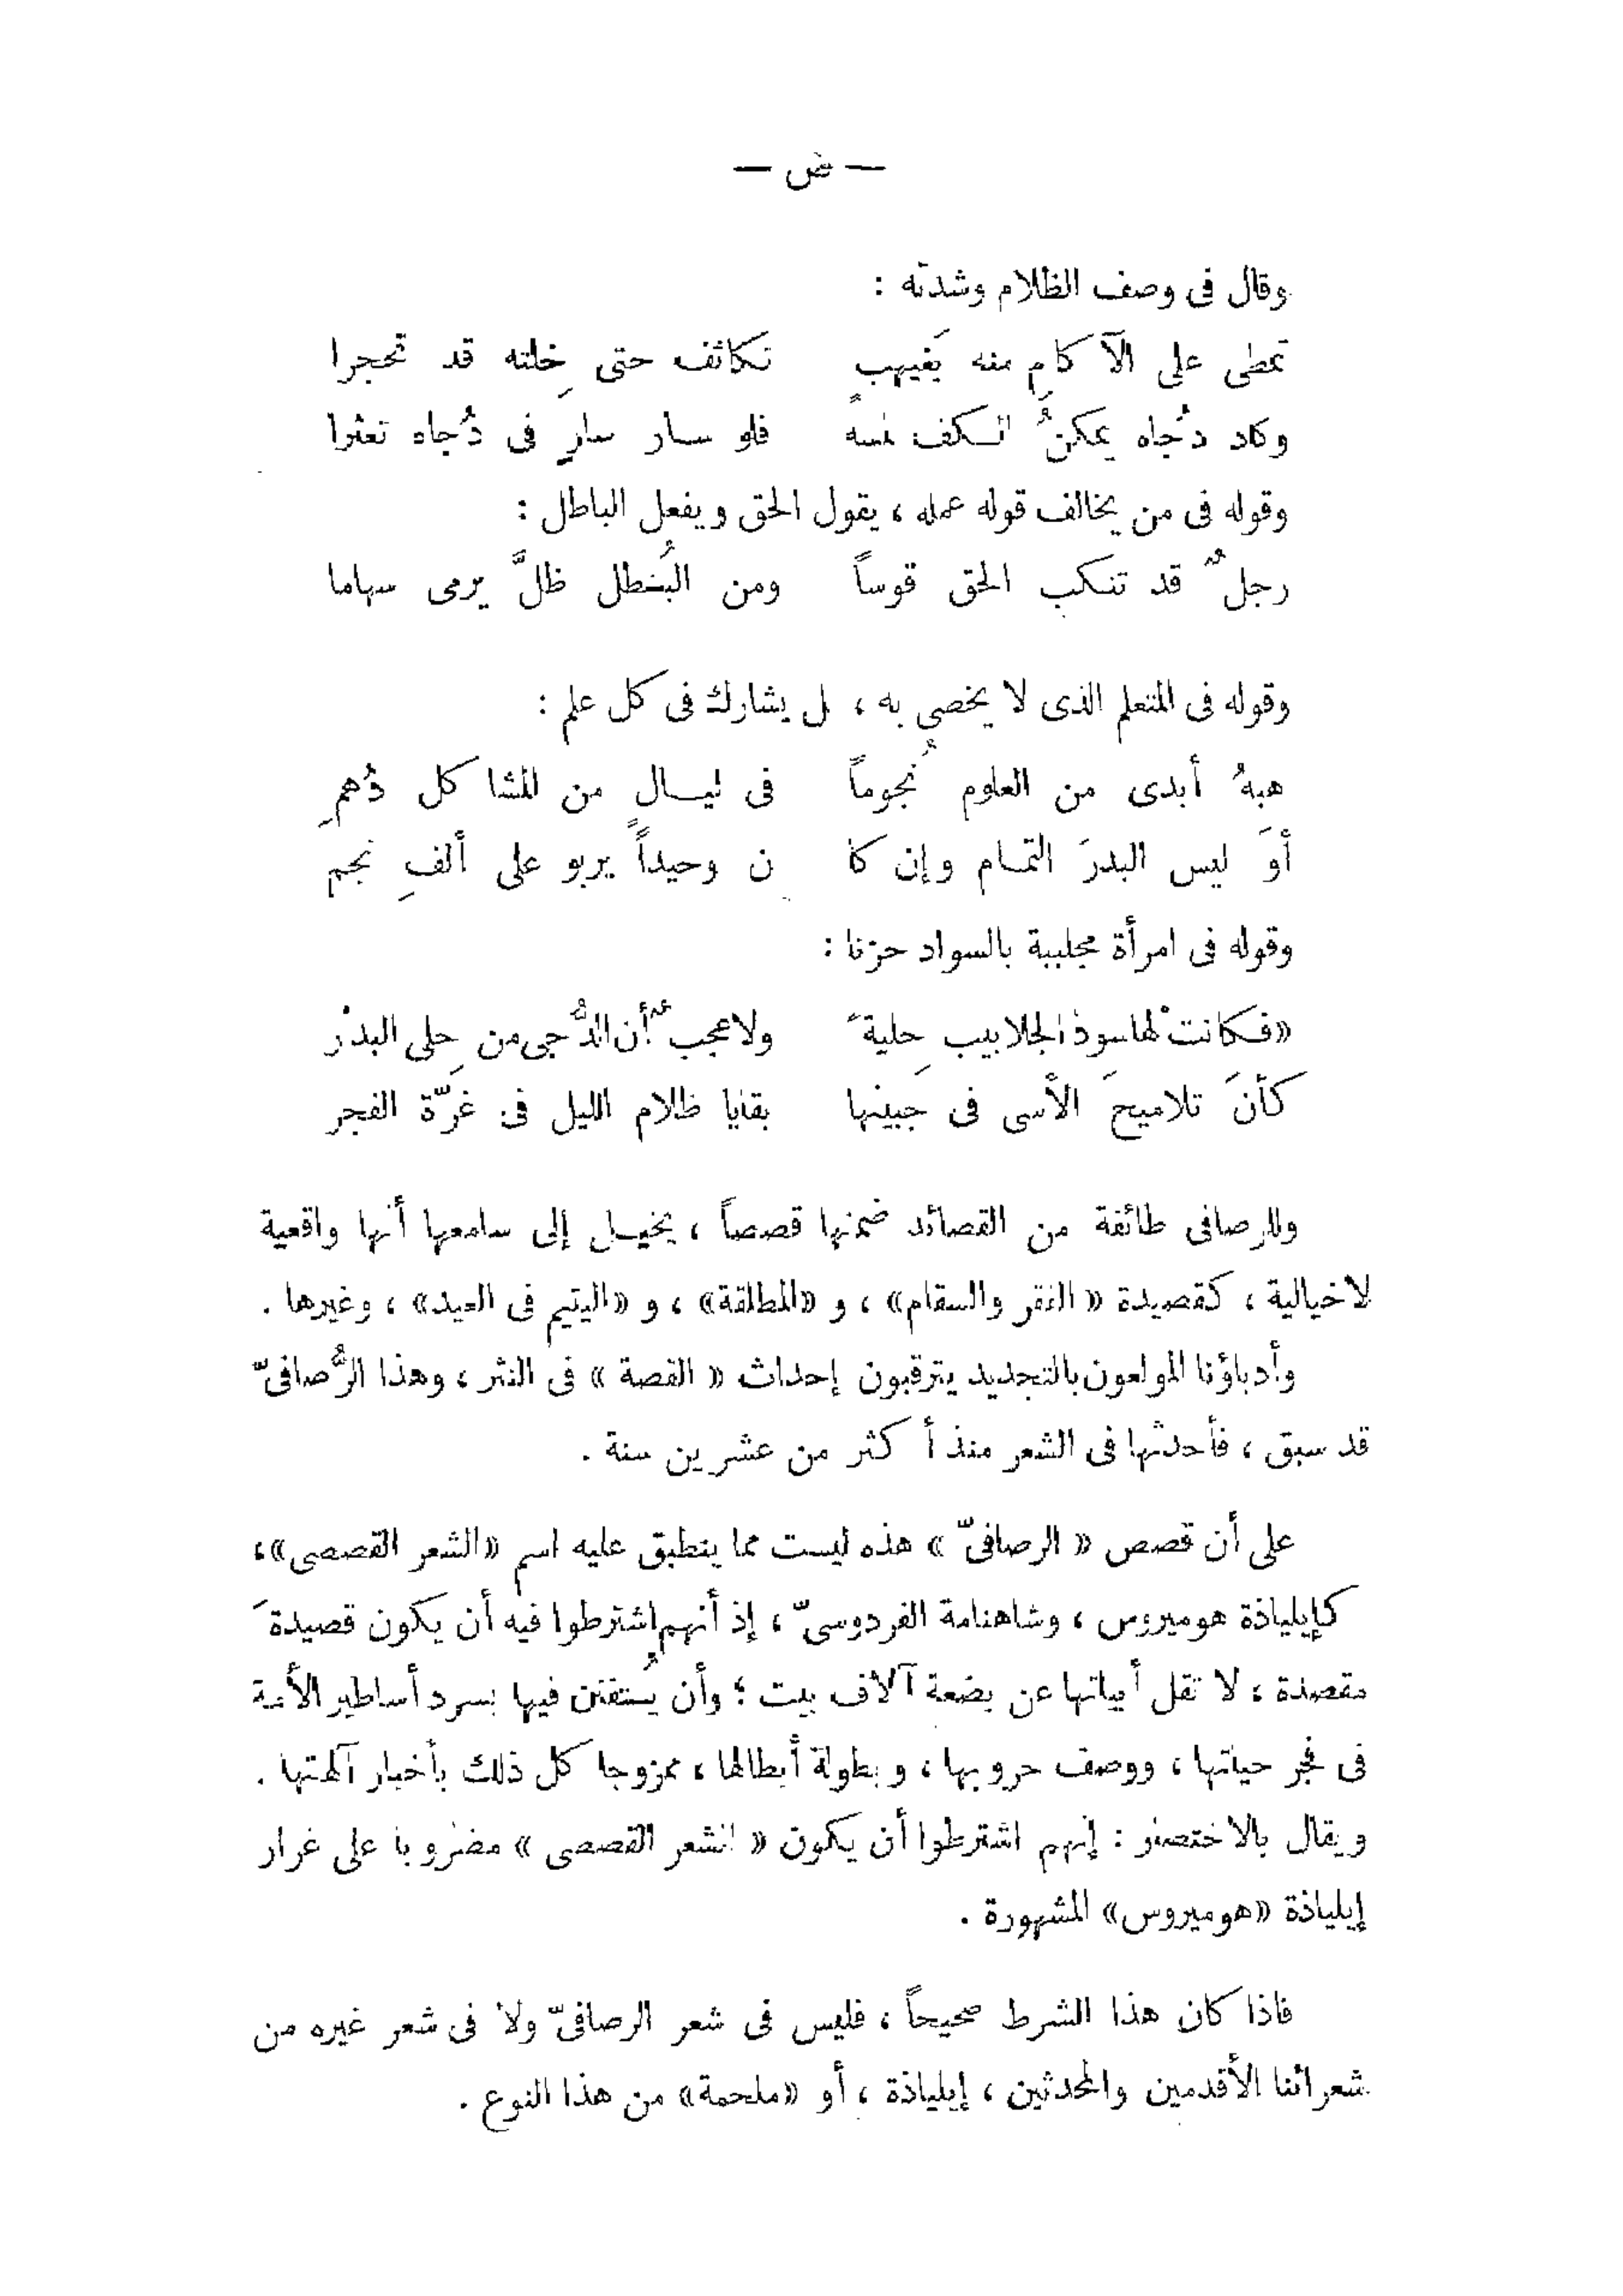 — ض —
وقال فى وصف الظلام وشدته :
تمطى على الآكامِ منه بغيهبٍ تكاثف حتى خِلته قد تحجرا
وكاد دُجاه يمكنُ الكف لمسه فلو سار سارٍ فى دُجاه تعثرا
وقوله فى من يخالف قوله عمله ، يقول الحق ويفعل الباطل :
رجلٌ قد تنكب الحق قوساً ومن البُطل ظلَّ يرمى سهاما
وقوله فى المتعلم الذى لا يخصى به ، بل يشارك فى كل علم :
هبهُ أبدى من العلوم نُجوماً فى ليالٍ من المشاكل دُهمِ
أوَ ليس البدرَ التمام وإن كا ن وحيداً يربو على ألفِ نجم
وقوله فى امرأة مجلببة بالسواد حزنا :
«فكانت لها سود الجلابيب حِلية ولا عجبٌ أن الدُّجى من حِلى البدر
كأنَ تلاميحَ الأسى فى جَبينها بقايا ظلام الليل فى غرّة الفجر
وللرصافى طائفة من القصائد ضمنها قصصاً ، يخيل إلى سامعها أنها واقعية
لا خيالية ، كقصيدة « الفقر والسقام» ، و «المطلقة» ، و «اليتيم فى العيد» ، وغيرها .
وأدباؤنا المولعون بالتجديد يترقبون إحداث « القصة » فى النثر ، وهذا الرُّصافىّ
قد سبق ، فأحدثها فى الشعر منذ أكثر من عشرين سنة .
على أن قصص « الرصافىّ » هذه ليست مما ينطبق عليه اسم «الشعر القصصى»،
كإيلياذة هوميروس ، وشاهنامة الفردوسىّ ، إذ أنهم اشترطوا فيه أن يكون قصيدةَ
مقصدة ، لا تقل أبياتها عن بضعة آلاف بيت ؛ وأن يُتفنن فيها بسرد أساطير الأمة
فى فجر حياتها ، ووصف حروبها ، وبطولة أبطالها ، ممزوجا كل ذلك بأخبار آلهتها .
ويقال بالاختصار : إنهم اشترطوا أن يكون « الشعر القصصى » مضروبا على غرار
إيلياذة «هوميروس» المشهورة .
فاذا كان هذا الشرط صحيحاً ، فليس فى شعر الرصافىّ ولا فى شعر غيره من
شعرائنا الأقدمين والمحدثين ، إيلياذة ، أو «ملحمة» من هذا النوع .